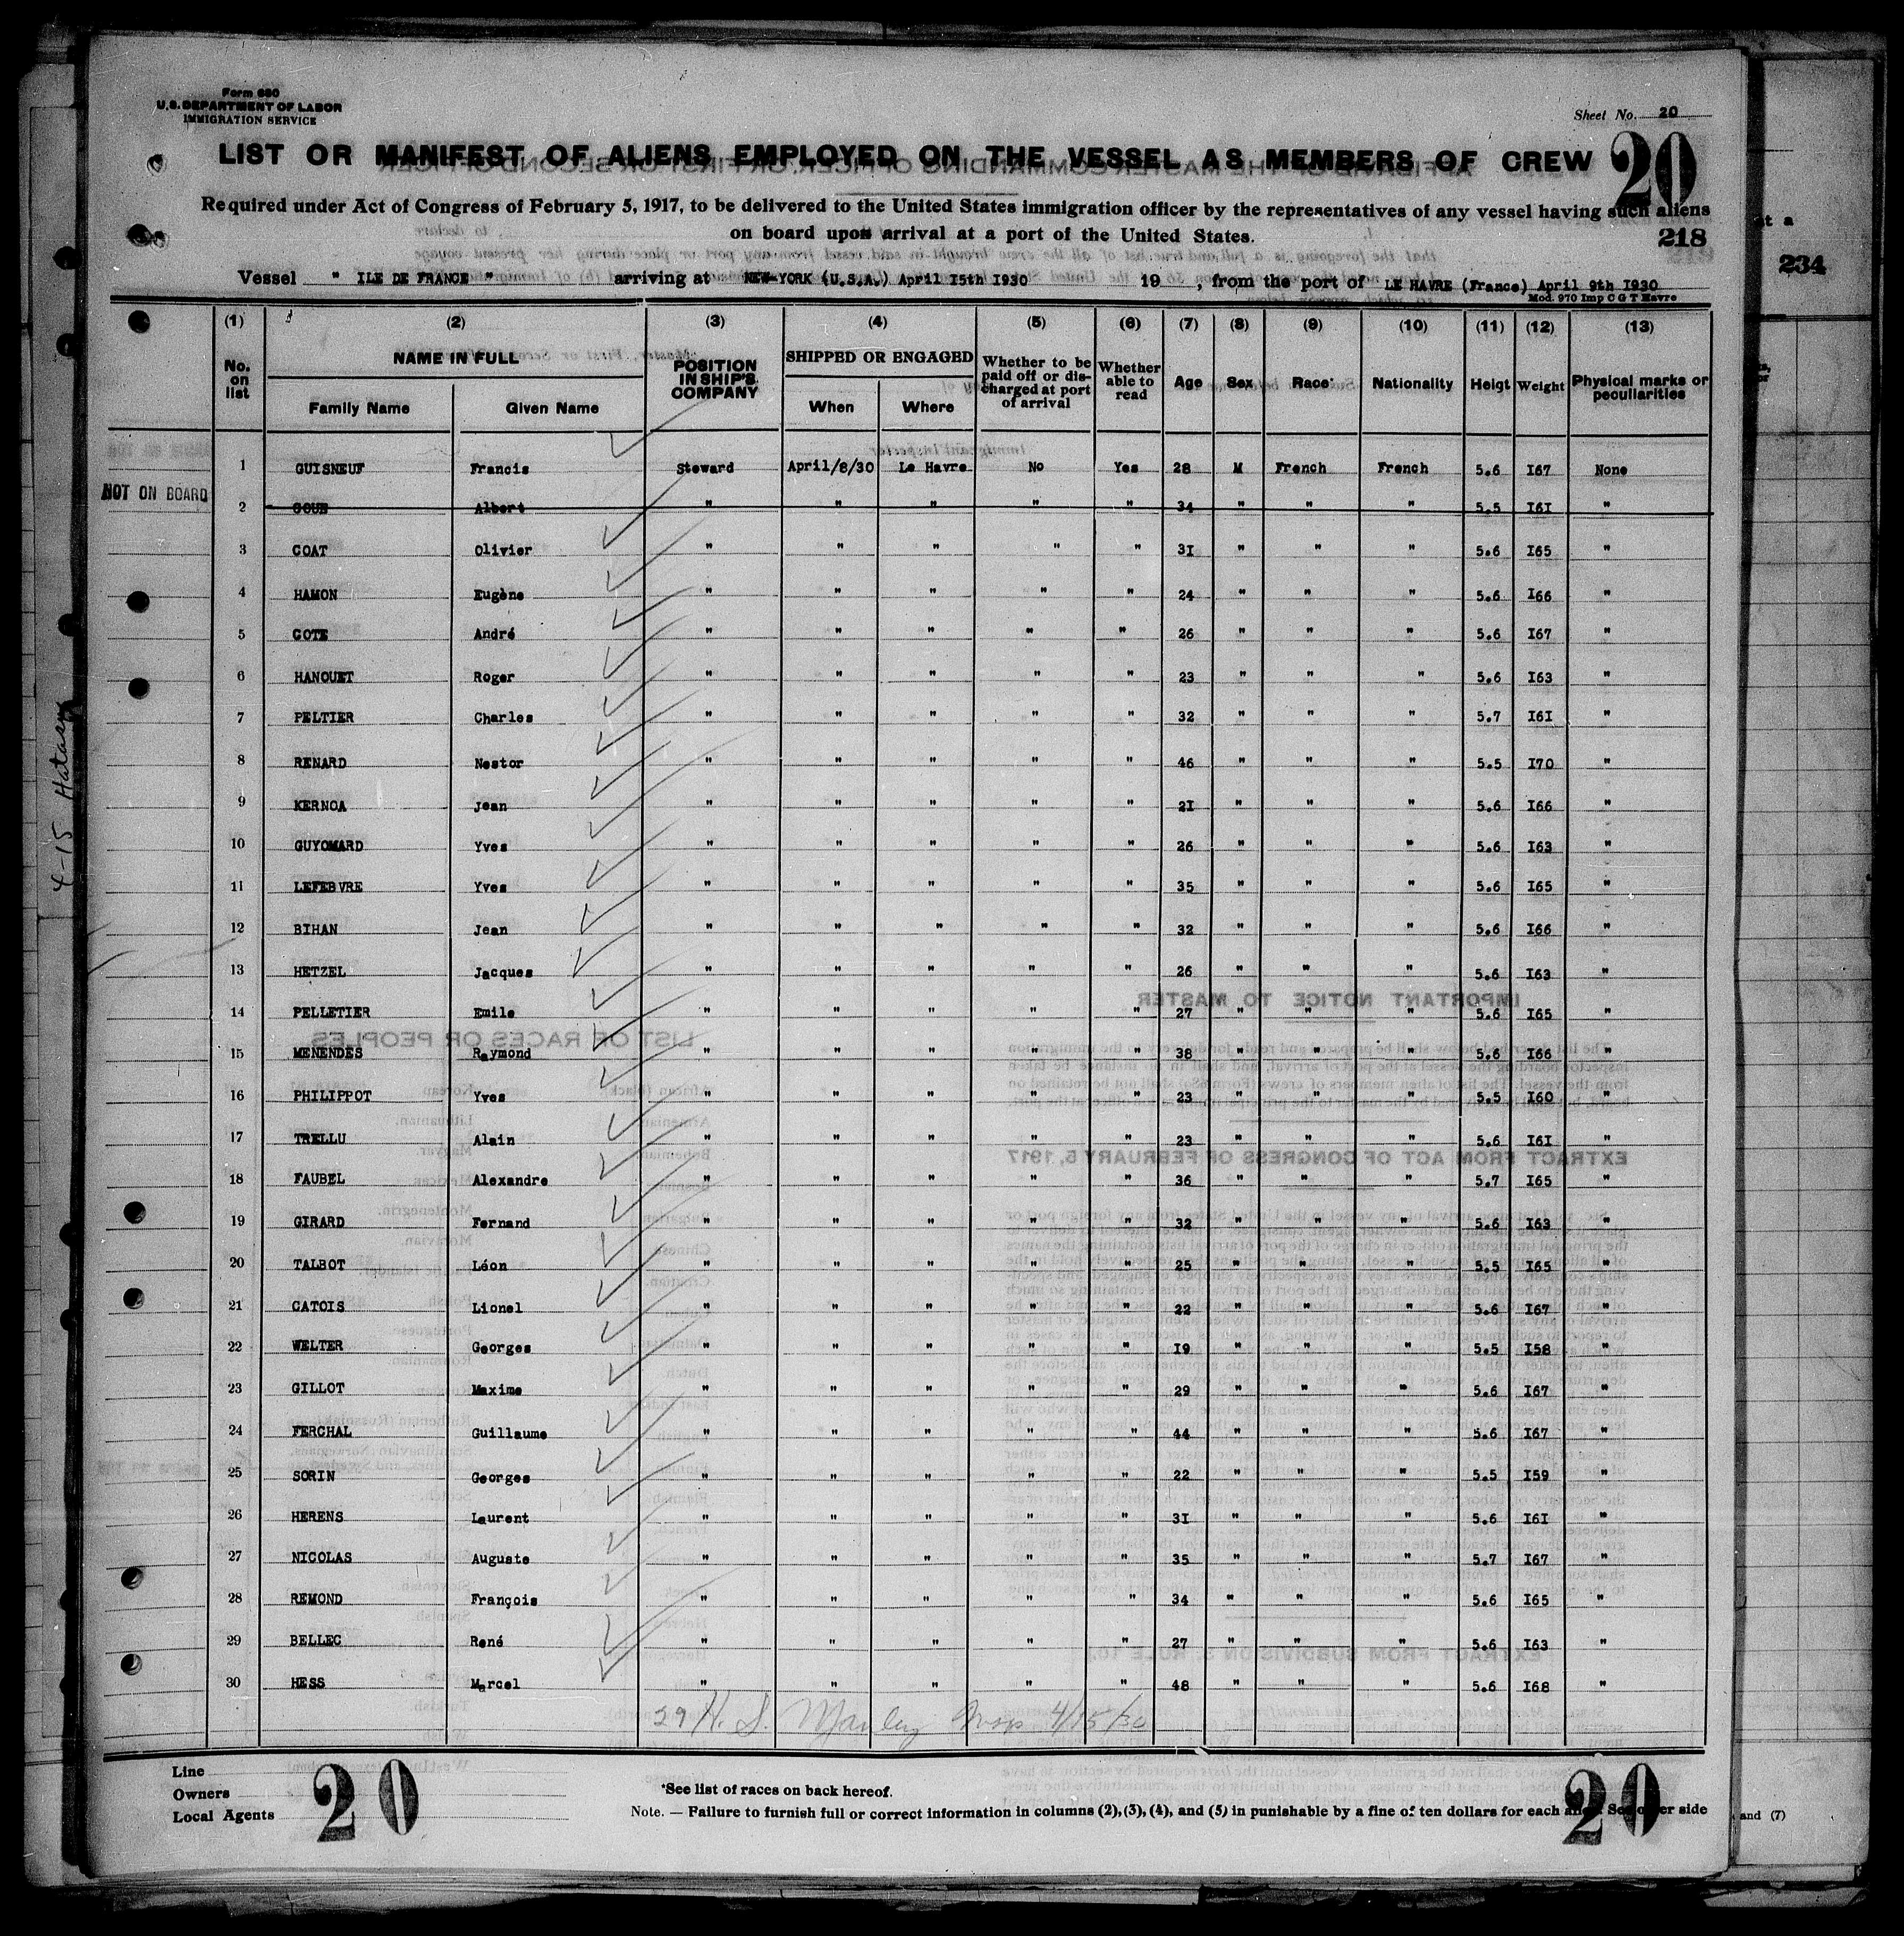 Form 680
U.S. DEPARTMENT OF LABOR
IMMIGRATION SERVICE
Sheet No. 20
LIST OR MANIFEST OF ALIENS EMPLOYED ON THE VESSEL AS MEMBERS OF CREW 20
Required under Act of Congress of February 5, 1917, to be delivered to the United States immigration officer by the representatives of any vessel having such aliens
on board upon arrival at a port of the United States.
218
234
Vessel " ILE DE FRANCE " arriving at NEW-YORK (U.S.A.) April I5th I930 19 , from the port of LE HAVRE (France) April 9th I930
Mod. 970 Imp C G T Havre
(1) (2) (3) (4) (5) (6) (7) (8) (9) (10) (11) (12) (13)
No. on list NAME IN FULL Family Name Given Name POSITION IN SHIP'S COMPANY SHIPPED OR ENGAGED When Where Whether to be paid off or discharged at port of arrival Whether able to read Age Sex Race* Nationality Heigt Weight Physical marks or peculiarities
1 GUISNEUF Francis Steward April/8/30 Le Havre No Yes 28 M French French 5.6 I67 None
NOT ON BOARD
2 GOUE Albert " " " " " 34 " " " 5.5 I6I "
3 COAT Olivier " " " " " 3I " " " 5.6 I65 "
4 HAMON Eugène " " " " " 24 " " " 5.6 I66 "
5 COTE André " " " " " 26 " " " 5.6 I67 "
6 HANOUET Roger " " " " " 23 " " " 5.6 I63 "
7 PELTIER Charles " " " " " 32 " " " 5.7 I6I "
8 RENARD Nestor " " " " " 46 " " " 5.5 I70 "
9 KERNOA Jean " " " " " 2I " " " 5.6 I66 "
10 GUYOMARD Yves " " " " " 26 " " " 5.6 I63 "
11 LEFEBVRE Yves " " " " " 35 " " " 5.6 I65 "
12 BIHAN Jean " " " " " 32 " " " 5.6 I66 "
13 HETZEL Jacques " " " " " 26 " " " 5.6 I63 "
14 PELLETIER Emile " " " " " 27 " " " 5.6 I65 "
15 MENENDES Raymond " " " " " 38 " " " 5.6 I66 "
16 PHILIPPOT Yves " " " " " 23 " " " 5.5 I60 "
17 TRELLU Alain " " " " " 23 " " " 5.6 I6I "
18 FAUBEL Alexandre " " " " " 36 " " " 5.7 I65 "
19 GIRARD Fernand " " " " " 32 " " " 5.6 I63 "
20 TALBOT Léon " " " " " 25 " " " 5.5 I65 "
21 CATOIS Lionel " " " " " 22 " " " 5.6 I67 "
22 WELTER Georges " " " " " I9 " " " 5.5 I58 "
23 GILLOT Maxime " " " " " 29 " " " 5.6 I67 "
24 FERCHAL Guillaume " " " " " 44 " " " 5.6 I67 "
25 SORIN Georges " " " " " 22 " " " 5.5 I59 "
26 HERENS Laurent " " " " " 3I " " " 5.6 I6I "
27 NICOLAS Auguste " " " " " 35 " " " 5.7 I67 "
28 REMOND François " " " " " 34 " " " 5.6 I65 "
29 BELLEC René " " " " " 27 " " " 5.6 I63 "
30 HESS Marcel " " " " " 48 " " " 5.6 I68 "
29 H. S. Manley Insp. 4/15/30
Line
Owners
Local Agents
20
*See list of races on back hereof.
Note. — Failure to furnish full or correct information in columns (2), (3), (4), and (5) in punishable by a fine of ten dollars for each alien. See other side
20
and (7)
4-15